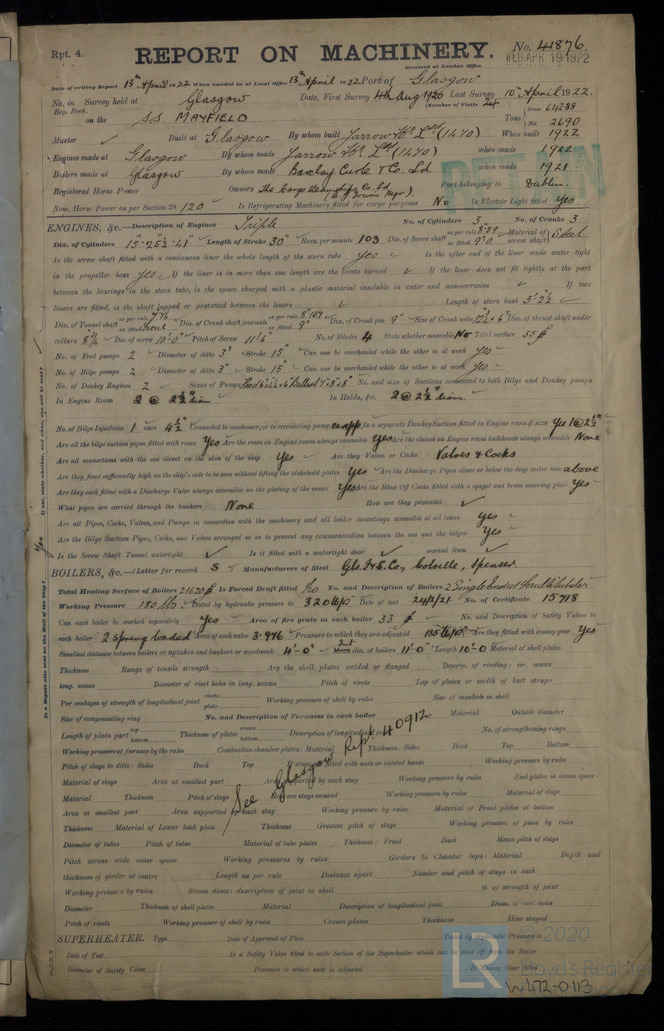 Rpt. 4.
REPORT ON MACHINERY.
No. 41876
WED. APR. 19 1922
Received at London Office
Date of writing Report 13th April 1922 When handed in at Local Office 13th April 1922 Port of Glasgow
No. in Survey held at Glasgow Date, First Survey 4th Aug 1920 Last Survey 10th April 1922
Reg. Book. (Number of Visits
on the S.S. MAYFIELD Tons Gross Net 2690
Master Built at Glasgow By whom built Yarrow & Co Ltd (1470) When built 1922
Engines made at Glasgow By whom made Yarrow & Co Ltd (1470) when made 1922
Boilers made at Glasgow By whom made Barclay Curle & Co. Ld when made 1921
Registered Horse Power Owners The Cargo Steamships Co. Ld Port belonging to Dublin
Nom. Horse Power as per Section 28 120 Is Refrigerating Machinery fitted for cargo purposes No Is Electric Light fitted Yes
ENGINES, &c.—Description of Engines Triple No. of Cylinders 3 No. of Cranks 3
Dia. of Cylinders Length of Stroke 30" Revs. per minute 103 Dia. of Screw shaft as per rule as fitted 9.0" Material of screw shaft Steel
Is the screw shaft fitted with a continuous liner the whole length of the stern tube Yes Is the after end of the liner made water tight
in the propeller boss yes If the liner is in more than one length are the joints burned If the liner does not fit tightly at the part
between the bearings in the stern tube, is the space charged with a plastic material insoluble in water and non-corrosive If two
liners are fitted, is the shaft lapped or protected between the liners Length of stern bush 3'-2½"
Dia. of Tunnel shaft as per rule as fitted none Dia. of Crank shaft journals as per rule as fitted 9" Dia. of Crank pin 9" Size of Crank webs Dia. of thrust shaft under
collars Dia. of screw 10'-0" Pitch of Screw 11'-6" No. of Blades 4 State whether moveable No Total surface 35
No. of Feed pumps 2 Diameter of ditto 3" Stroke 15" Can one be overhauled while the other is at work Yes
No. of Bilge pumps 2 Diameter of ditto 3" Stroke 15" Can one be overhauled while the other is at work Yes
No. of Donkey Engines 2 Sizes of Pumps No. and size of Suctions connected to both Bilge and Donkey pumps
In Engine Room 2 @ 2½" diam In Holds, &c. 2 @ 2½" diam.
No. of Bilge Injections 1 sizes 4½" Connected to condenser, or to circulating pump Is a separate Donkey Suction fitted in Engine room & size Yes 1 @ 2½"
Are all the bilge suction pipes fitted with roses Yes Are the roses in Engine room always accessible Yes Are the sluices on Engine room bulkheads always accessible None
Are all connections with the sea direct on the skin of the ship Yes Are they Valves or Cocks Valves & Cocks
Are they fixed sufficiently high on the ship's side to be seen without lifting the stokehold plates Yes Are the Discharge Pipes above or below the deep water line above
Are they each fitted with a Discharge Valve always accessible on the plating of the vessel Yes Are the Blow Off Cocks fitted with a spigot and brass covering plate Yes
What pipes are carried through the bunkers None How are they protected
Are all Pipes, Cocks, Valves, and Pumps in connection with the machinery and all boiler mountings accessible at all times Yes
Are the Bilge Suction Pipes, Cocks, and Valves arranged so as to prevent any communication between the sea and the bilges Yes
Is the Screw Shaft Tunnel watertight Is it fitted with a watertight door worked from
BOILERS, &c.—(Letter for record S) Manufacturers of Steel Gls. I & S. Co, Colville, Spencer
Total Heating Surface of Boilers 2162 Is Forced Draft fitted No No. and Description of Boilers 2 Single Ended Multitubular
Working Pressure 180 lbs. Tested by hydraulic pressure to 320 lbs Date of test 24/2/21 No. of Certificate 15718
Can each boiler be worked separately Yes Area of fire grate in each boiler 33 No. and Description of Safety Valves to
each boiler 2 Spring loaded Area of each valve 3.976 Pressure to which they are adjusted 185 lbs Are they fitted with easing gear Yes
Smallest distance between boilers or uptakes and bunkers or woodwork 4'-0" dia. of boilers 11'-0" Length 10'-0 Material of shell plates
Thickness Range of tensile strength Are the shell plates welded or flanged Descrip. of riveting: cir. seams
long. seams Diameter of rivet holes in long. seams Pitch of rivets Lap of plates or width of butt straps
Per centages of strength of longitudinal joint rivets plate Working pressure of shell by rules Size of manhole in shell
Size of compensating ring No. and Description of Furnaces in each boiler Material Outside diameter
Length of plain part top bottom Thickness of plates crown bottom Description of longitudinal joint No. of strengthening rings
Working pressure of furnace by the rules Combustion chamber plates: Material Thickness: Sides Back Top Bottom
Pitch of stays to ditto: Sides Back Top If stays are fitted with nuts or riveted heads Working pressure by rules
Material of stays Area at smallest part Area supported by each stay Working pressure by rules End plates in steam space:
Material Thickness Pitch of stays How are stays secured Working pressure by rules Material of stays
Area at smallest part Area supported by each stay Working pressure by rules Material of Front plates at bottom
Thickness Material of Lower back plate Thickness Greatest pitch of stays Working pressure of plate by rules
Diameter of tubes Pitch of tubes Material of tube plates Thickness: Front Back Mean pitch of stays
Pitch across wide water spaces Working pressures by rules Girders to Chamber tops: Material Depth and
thickness of girder at centre Length as per rule Distance apart Number and pitch of stays in each
Working pressure by rules Steam dome: description of joint to shell % of strength of joint
Diameter Thickness of shell plates Material Description of longitudinal joint Diam. of rivet holes
Pitch of rivets Working pressure of shell by rules Crown plates Thickness How stayed
See Glasgow Rpt. 40912.
SUPERHEATER. Type Date of Approval of Plan Tested by Hydraulic Pressure to
Date of Test Is a Safety Valve fitted to each Section of the Superheater which can be shut off from the Boiler
Diameter of Safety Valve Pressure to which each is adjusted Is Easing Gear fitted
Is a Report also sent on the Hull of the Ship? Yes
If not, state whether, and when, one will be sent?
© 2020
LR
Lloyd's Register
W472-0113